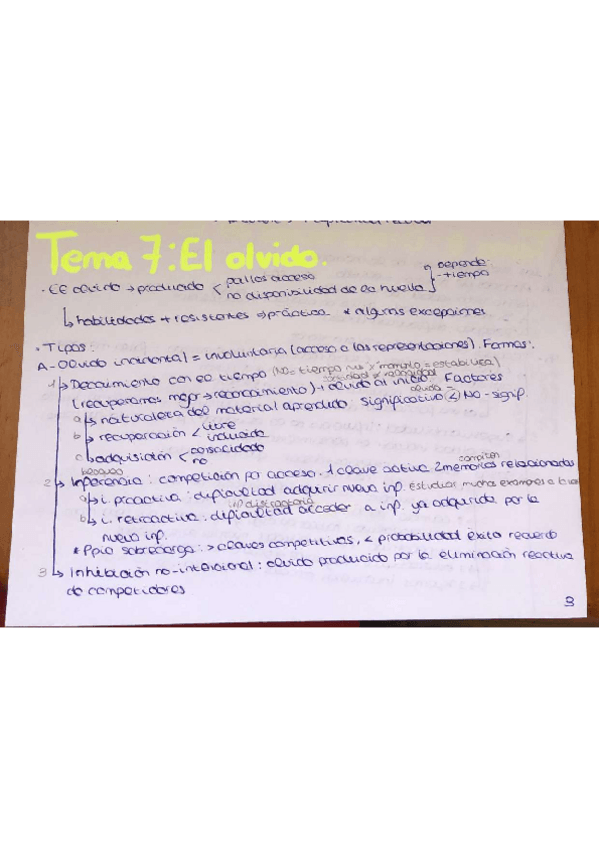 Tema 7: El olvido.
· El olvido → producido < fallos acceso
no disponibilidad de la huella } depende:
- tiempo
↳ habilidades + resistentes ⇒ práctica * algunas excepciones
· Tipos:
A- Olvido incidental = involuntaria (acceso a las representaciones). Formas:
1 ↳ Decaimiento con el tiempo (NO = tiempo
(recuperamos mejor → reconocimiento) + olvido al inicio Factores
olvido =
a ↳ naturaleza del material aprendido: significativo (<) NO-signif.
b ↳ recuperación < libre
inducida
c ↳ adquisición < consolidado
no
bloqueo
compiten
2 ↳ Inferencia: competición por acceso. 1 clave activa 2 memorias relacionadas
a ↳ i. proactiva: dificultad adquirir nueva inf. estudiar muchos exámenes a la vez
inf distractora
b ↳ i. retroactiva: dificultad acceder a inf. ya adquirida por la
nueva inf.
* Ppio sobrecarga: > claves competitivas, < probabilidad éxito recuerdo
3 ↳ Inhibición no-intencional: olvido producido por la eliminación reactiva
de competidores
3